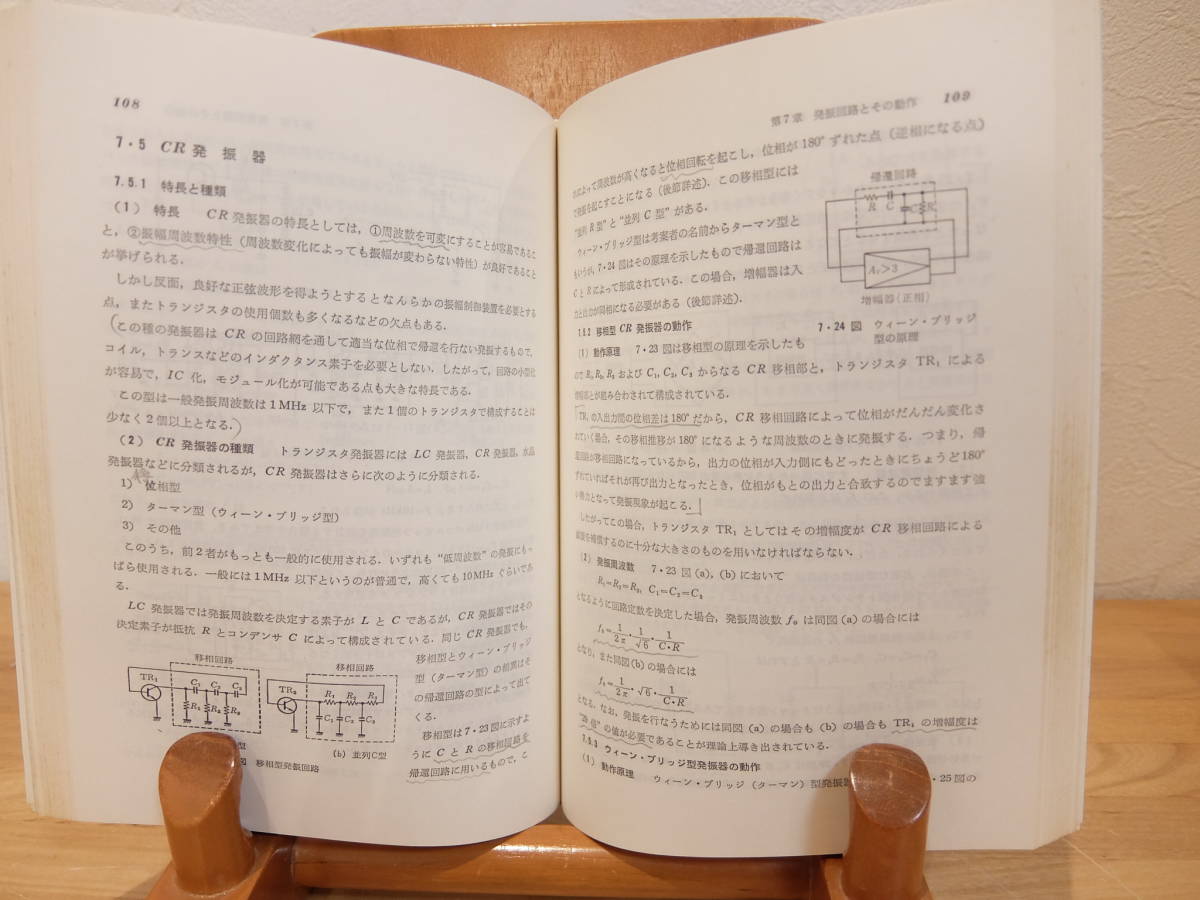 108
7・5 CR発振器
7.5.1 特長と種類
(1) 特長 CR発振器の特長としては，①周波数を可変にすることが容易であるこ
と，②振幅周波数特性（周波数変化によっても振幅が変わらない特性）が良好であること
が挙げられる．
しかし反面，良好な正弦波形を得ようとするとなんらかの振幅制御装置を必要とする
点，またトランジスタの使用個数も多くなるなどの欠点もある．
（この種の発振器は CR の回路網を通して適当な位相で帰還を行ない発振するもので，
コイル，トランスなどのインダクタンス素子を必要としない．したがって，回路の小型化
が容易で，IC 化，モジュール化が可能である点も大きな特長である．
この型は一般発振周波数は1MHz 以下で，また1個のトランジスタで構成することは
少なく2個以上となる．）
(2) CR 発振器の種類 トランジスタ発振器には LC 発振器，CR発振器，水晶
発振器などに分類されるが，CR 発振器はさらに次のように分類される．
1) 位相型
2) ターマン型（ウィーン・ブリッジ型）
3) その他
このうち，前2者がもっとも一般的に使用される．いずれも“低周波数”の発振にもっ
ぱら使用される．一般には1MHz 以下というのが普通で，高くても10MHz ぐらいであ
る．
LC 発振器では発振周波数を決定する素子が L と C であるが，CR 発振器ではその
決定素子が抵抗 R とコンデンサ C によって構成されている．同じ CR 発振器でも，
移相型とウィーン・ブリッジ
型（ターマン型）の相異はそ
の帰還回路の型によって出て
くる．
移相型は7・23図に示すよ
うに C と R の移相回路を
帰還回路に用いるもので，こ
移相回路
TR₁
C₁ C₂ C₃
R₁ R₂ R₃
移相回路
TR₂
R₁ R₂ R₃
C₁ C₂ C₃
型
(b) 並列C型
図 移相型発振回路
第7章 発振回路とその動作 109
れによって周波数が高くなると位相回転を起こし，位相が180°ずれた点（逆相になる点）
で発振を起こすことになる（後節詳述）．この移相型には
“並列 R 型”と“並列 C 型”がある．
ウィーン・ブリッジ型は考案者の名前からターマン型と
もいうが，7・24 図はその原理を示したもので帰還回路は
C と R によって形成されている．この場合，増幅器は入
力と出力が同相になる必要がある（後節詳述）．
帰還回路
R C
C R
Aᵥ>3
増幅器（正相）
7・24 図 ウィーン・ブリッジ
型の原理
7.5.2 移相型 CR 発振器の動作
(1) 動作原理 7・23 図は移相型の原理を示したも
ので R₁, R₂, R₃ および C₁, C₂, C₃ からなる CR 移相部と，トランジスタ TR₁ による
増幅部とが組み合わされて構成されている．
TR₁ の入出力間の位相差は180°だから，CR 移相回路によって位相がだんだん変化さ
れていく場合，その移相推移が180°になるような周波数のときに発振する．つまり，帰
還回路が移相回路になっているから，出力の位相が入力側にもどったときにちょうど180°
ずれていればそれが再び出力となったとき，位相がもとの出力と合致するのでますます強
い勢力となって発振現象が起こる．
したがってこの場合，トランジスタ TR₁ としてはその増幅度が CR 移相回路による
減衰を補償するのに十分な大きさのものを用いなければならない．
(2) 発振周波数 7・23 図(a)，(b)において
R₁=R₂=R₃, C₁=C₂=C₃
となるように回路定数を決定した場合，発振周波数 f₀ は同図(a)の場合には
f₀=1/2π・1/√6・1/C・R
となり，また同図(b)の場合には
f₀=1/2π・√6・1/C・R
となる．なお，発振を行なうためには同図 (a) の場合も (b) の場合も TR₁ の増幅度は
倍”の値が必要であることが理論上導き出されている．
7.5.3 ウィーン・ブリッジ型発振器の動作
(1) 動作原理 ウィーン・ブリッジ（ターマン）型発振器
・25図の